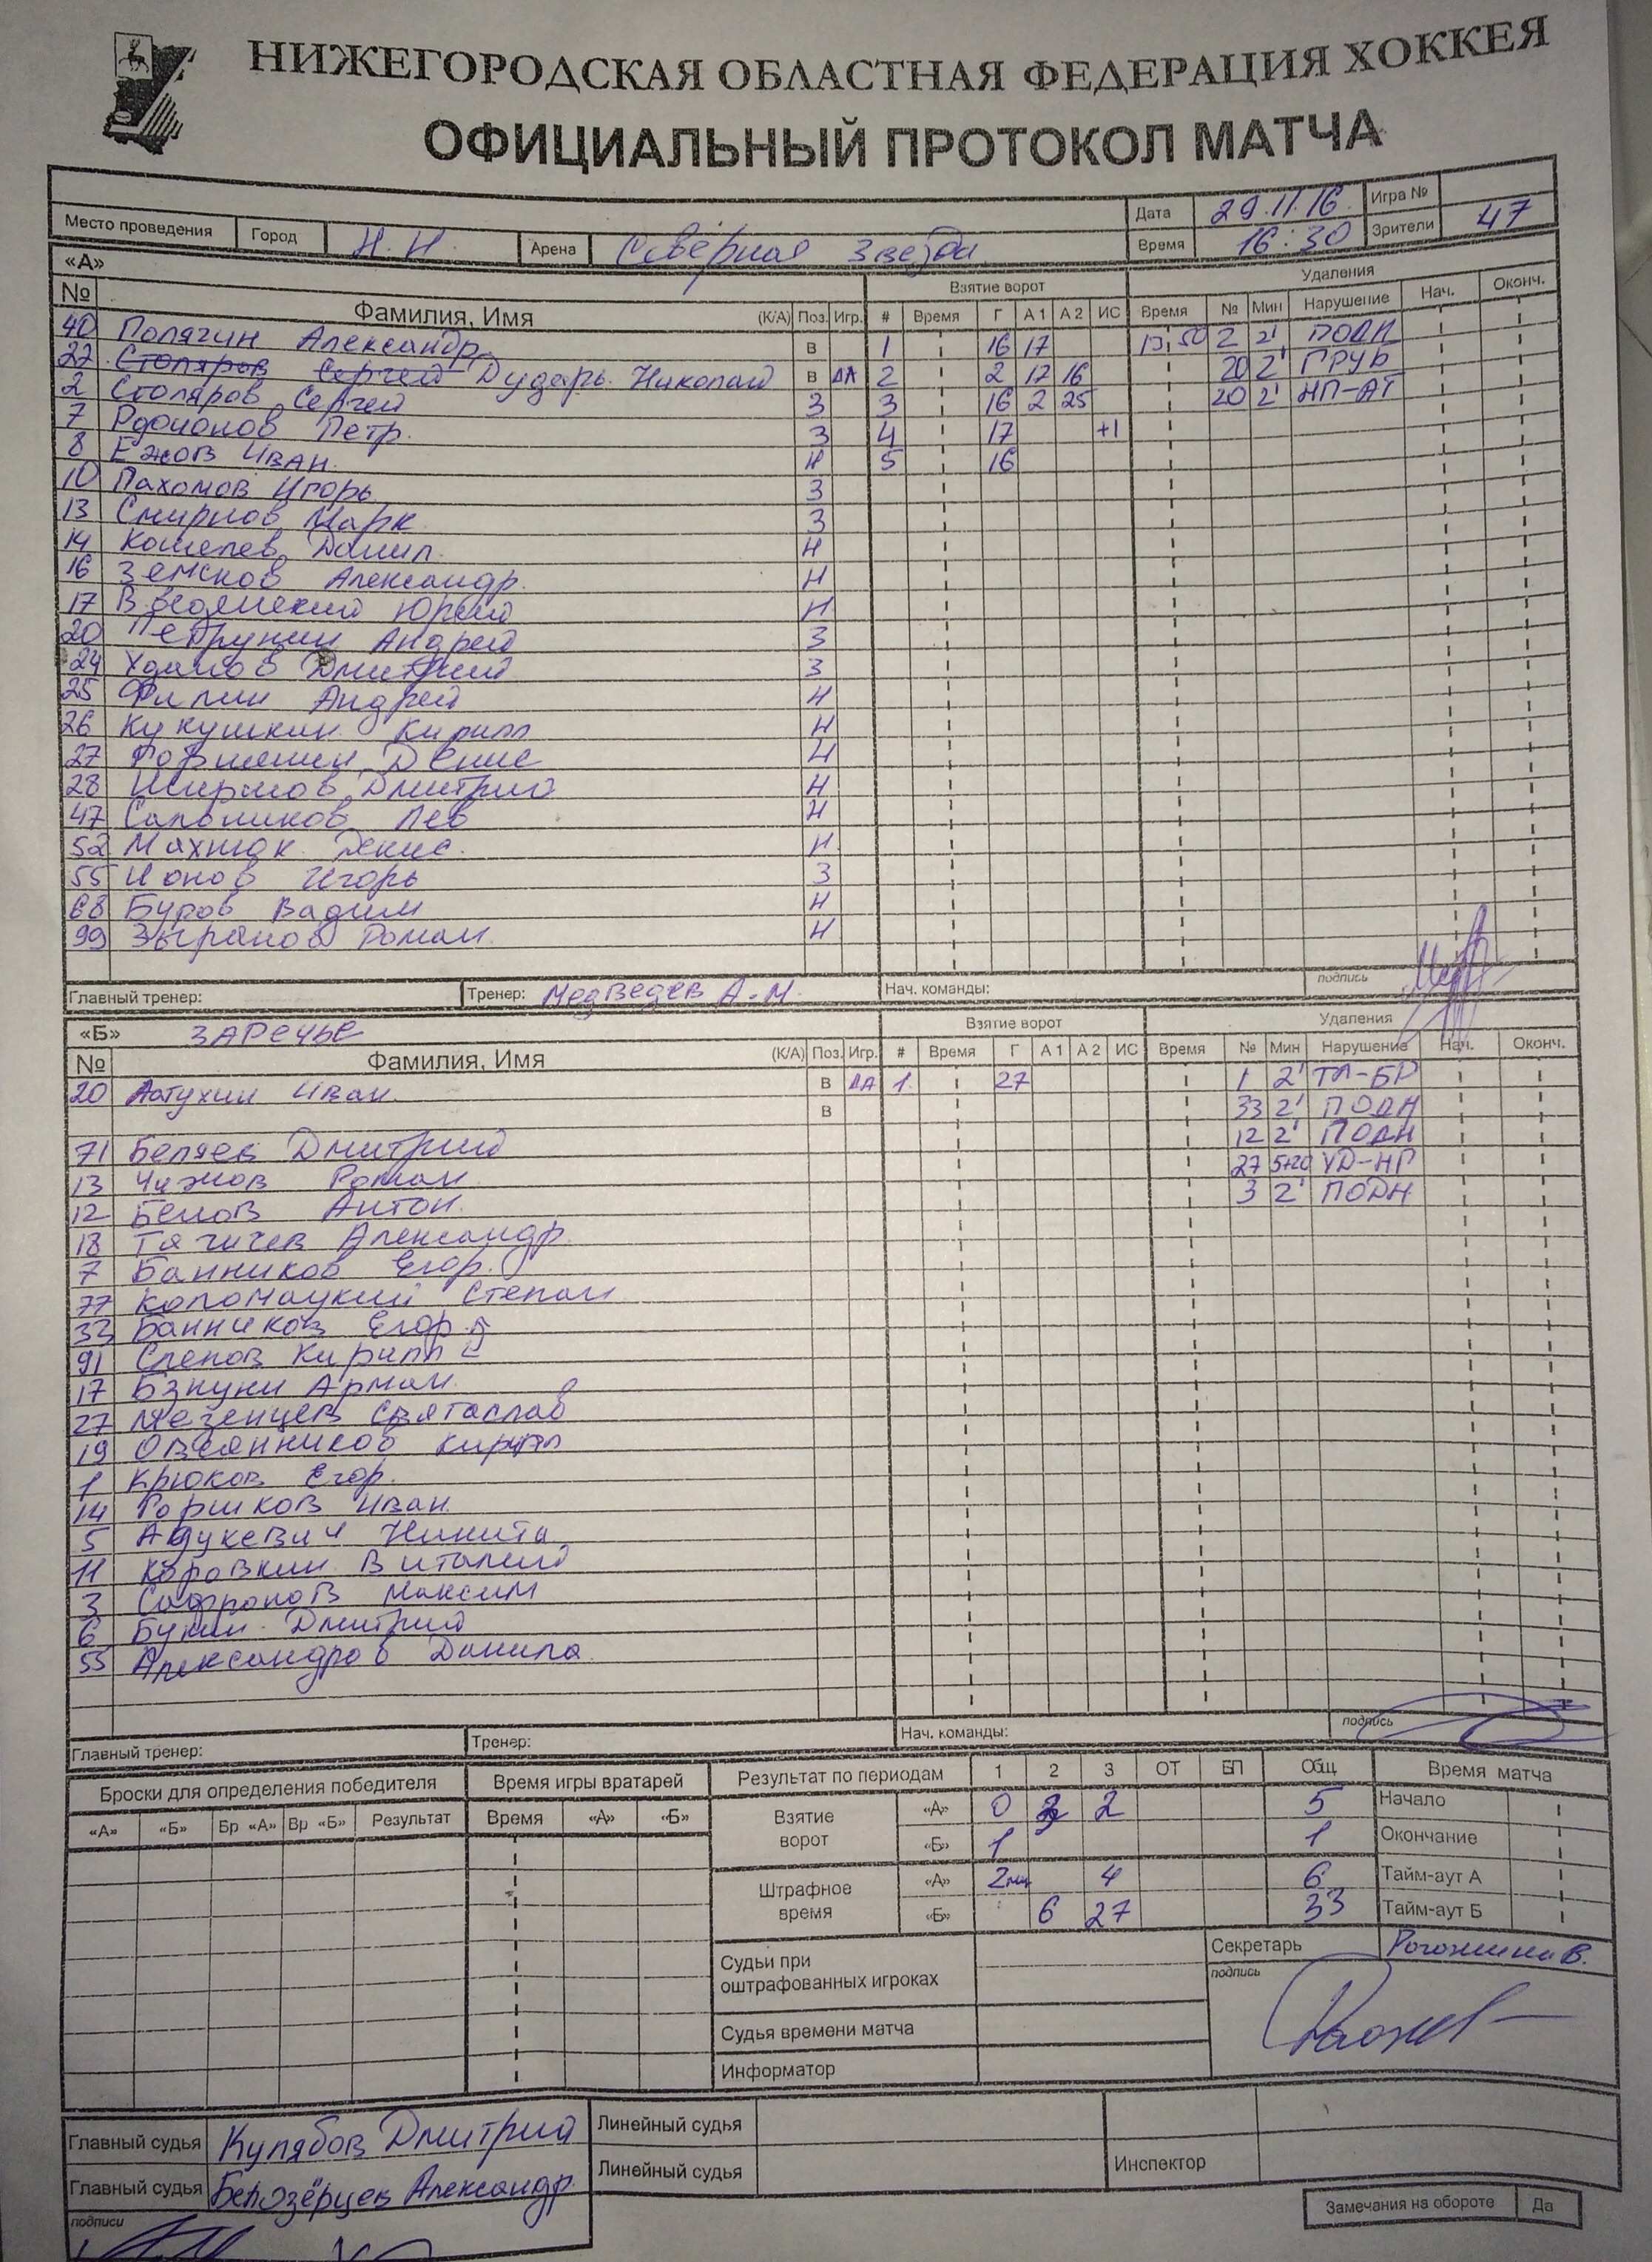 НИЖЕГОРОДСКАЯ ОБЛАСТНАЯ ФЕДЕРАЦИЯ ХОККЕЯ
ОФИЦИАЛЬНЫЙ ПРОТОКОЛ МАТЧА
Дата 29.11.16 Игра №
Место проведения Город Н.Н. Арена Северная звезда Время 16:30 Зрители 47
«А» Взятие ворот Удаления
№ Фамилия, Имя (К/А) Поз. Игр. # Время Г А 1 А 2 ИС Время № Мин Нарушение Нач. Оконч.
40 Полягин Александр в 1 16 17 13 50 2 2' ПОДН
22 Столяров Сергей Дударь Николай в ДА 2 2 17 16 20 2' ГРУБ
2 Столяров Сергей З 3 16 2 25 20 2' НП-АТ
7 Петр. З 4 17 +1
8 Ежов Иван. Н 5 16
10 Пахомов Игорь З
13 Смирнов Марк З
14 Кошелев Данил Н
16 Земсков Александр. Н
17 Введенский Юрий Н
20 Петрунин Андрей З
24 Дмитрий З
25 Филин Андрей Н
26 Кукушкин Кирилл Н
27 Денис Н
28 Дмитрий Н
47 Сальников Лев Н
52 Махнюк Денис. Н
55 Ионов Игорь З
68 Буров Вадим Н
99 Роман Н
Главный тренер: Тренер: Медведев А.М. Нач. команды: подпись
«Б» ЗАРЕЧЬЕ Взятие ворот Удаления
№ Фамилия, Имя (К/А) Поз. Игр. # Время Г А 1 А 2 ИС Время № Мин Нарушение Нач. Оконч.
20 Иван в ДА 1 27 1 2' ТЛ-БР
в 33 2' ПОДН
71 Беляев Дмитрий 12 2' ПОДН
13 Чижов Роман 27 5+20 УД-НР
12 Белов Антон. 3 2' ПОДН
18 Александр
7 Банников Егор.
77 Степан
33 Банников Егор Б
91 Слепов Кирилл
17 Бзнуни Арман.
27 Мезенцев Святаслав
19 Овсянников Кирилл
1 Крюков Егор.
14 Горшков Иван
5 Адукевич Никита
11 Коровкин Виталий
3 Сафронов Максим
6 Букин Дмитрий
55 Александров Данила
Главный тренер: Тренер: Нач. команды: подпись
Броски для определения победителя Время игры вратарей Результат по периодам 1 2 3 ОТ БП Общ. Время матча
«А» «Б» Бр «А» Вр «Б» Результат Время «А» «Б» Взятие ворот «А» 0 3 2 5 Начало
«Б» 1 1 Окончание
Штрафное время «А» 2 4 6 Тайм-аут А
«Б» 6 27 33 Тайм-аут Б
Судьи при оштрафованных игроках Секретарь Рогожина В.
подпись
Судья времени матча
Информатор
Главный судья Кулябов Дмитрий Линейный судья
Главный судья Белозёрцев Александр Линейный судья Инспектор
подписи Замечания на обороте Да